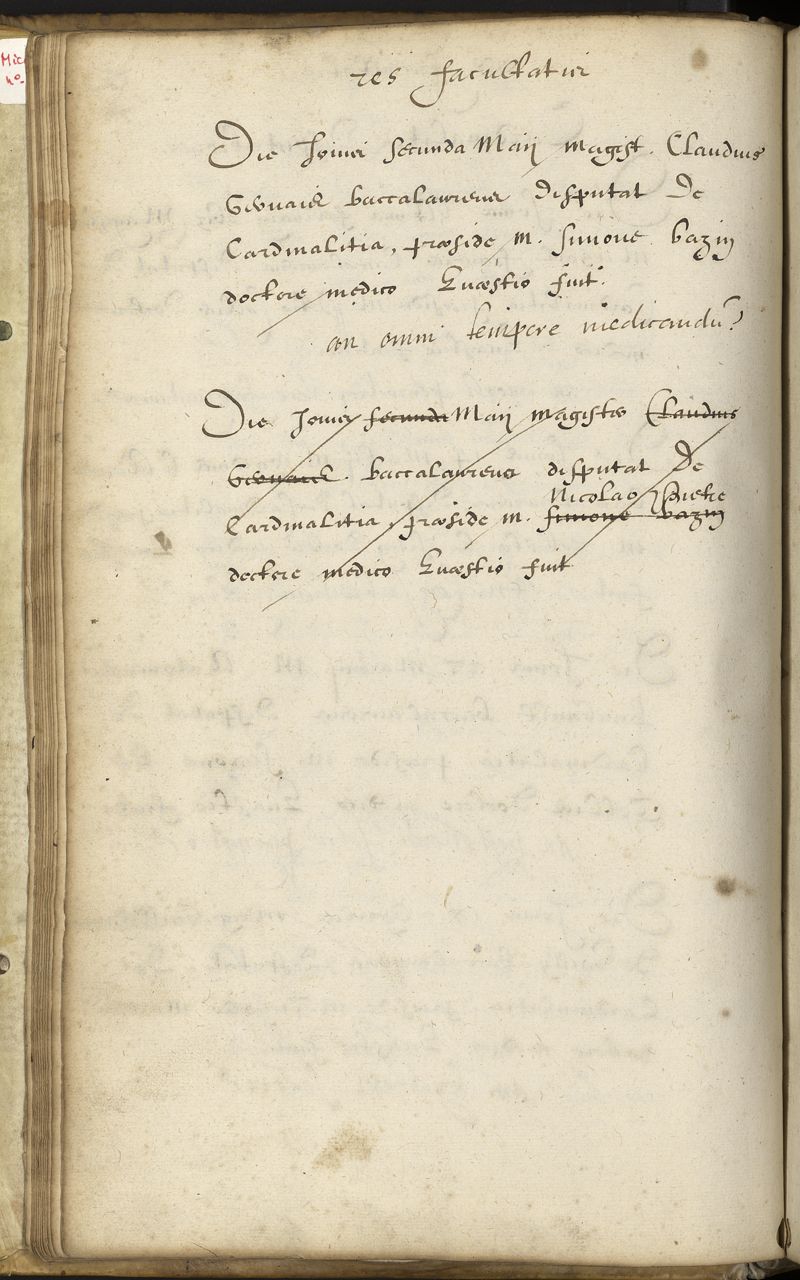 Mic
no.
res facultatis
Die Jovis secunda Maij magist. Claudius
Gervais baccalaureus disputat De
Cardinalitia, præside, m. simone bazin
doctore medico Quæstio fuit.
an omni tempore medicandũ?
Die Jovis secunda Maij magister Claudius
Gervais. baccalaureus disputat De
Nicolao Pietre
Cardinalitia, præside m. simone bazin
doctore medico Quæstio fuit